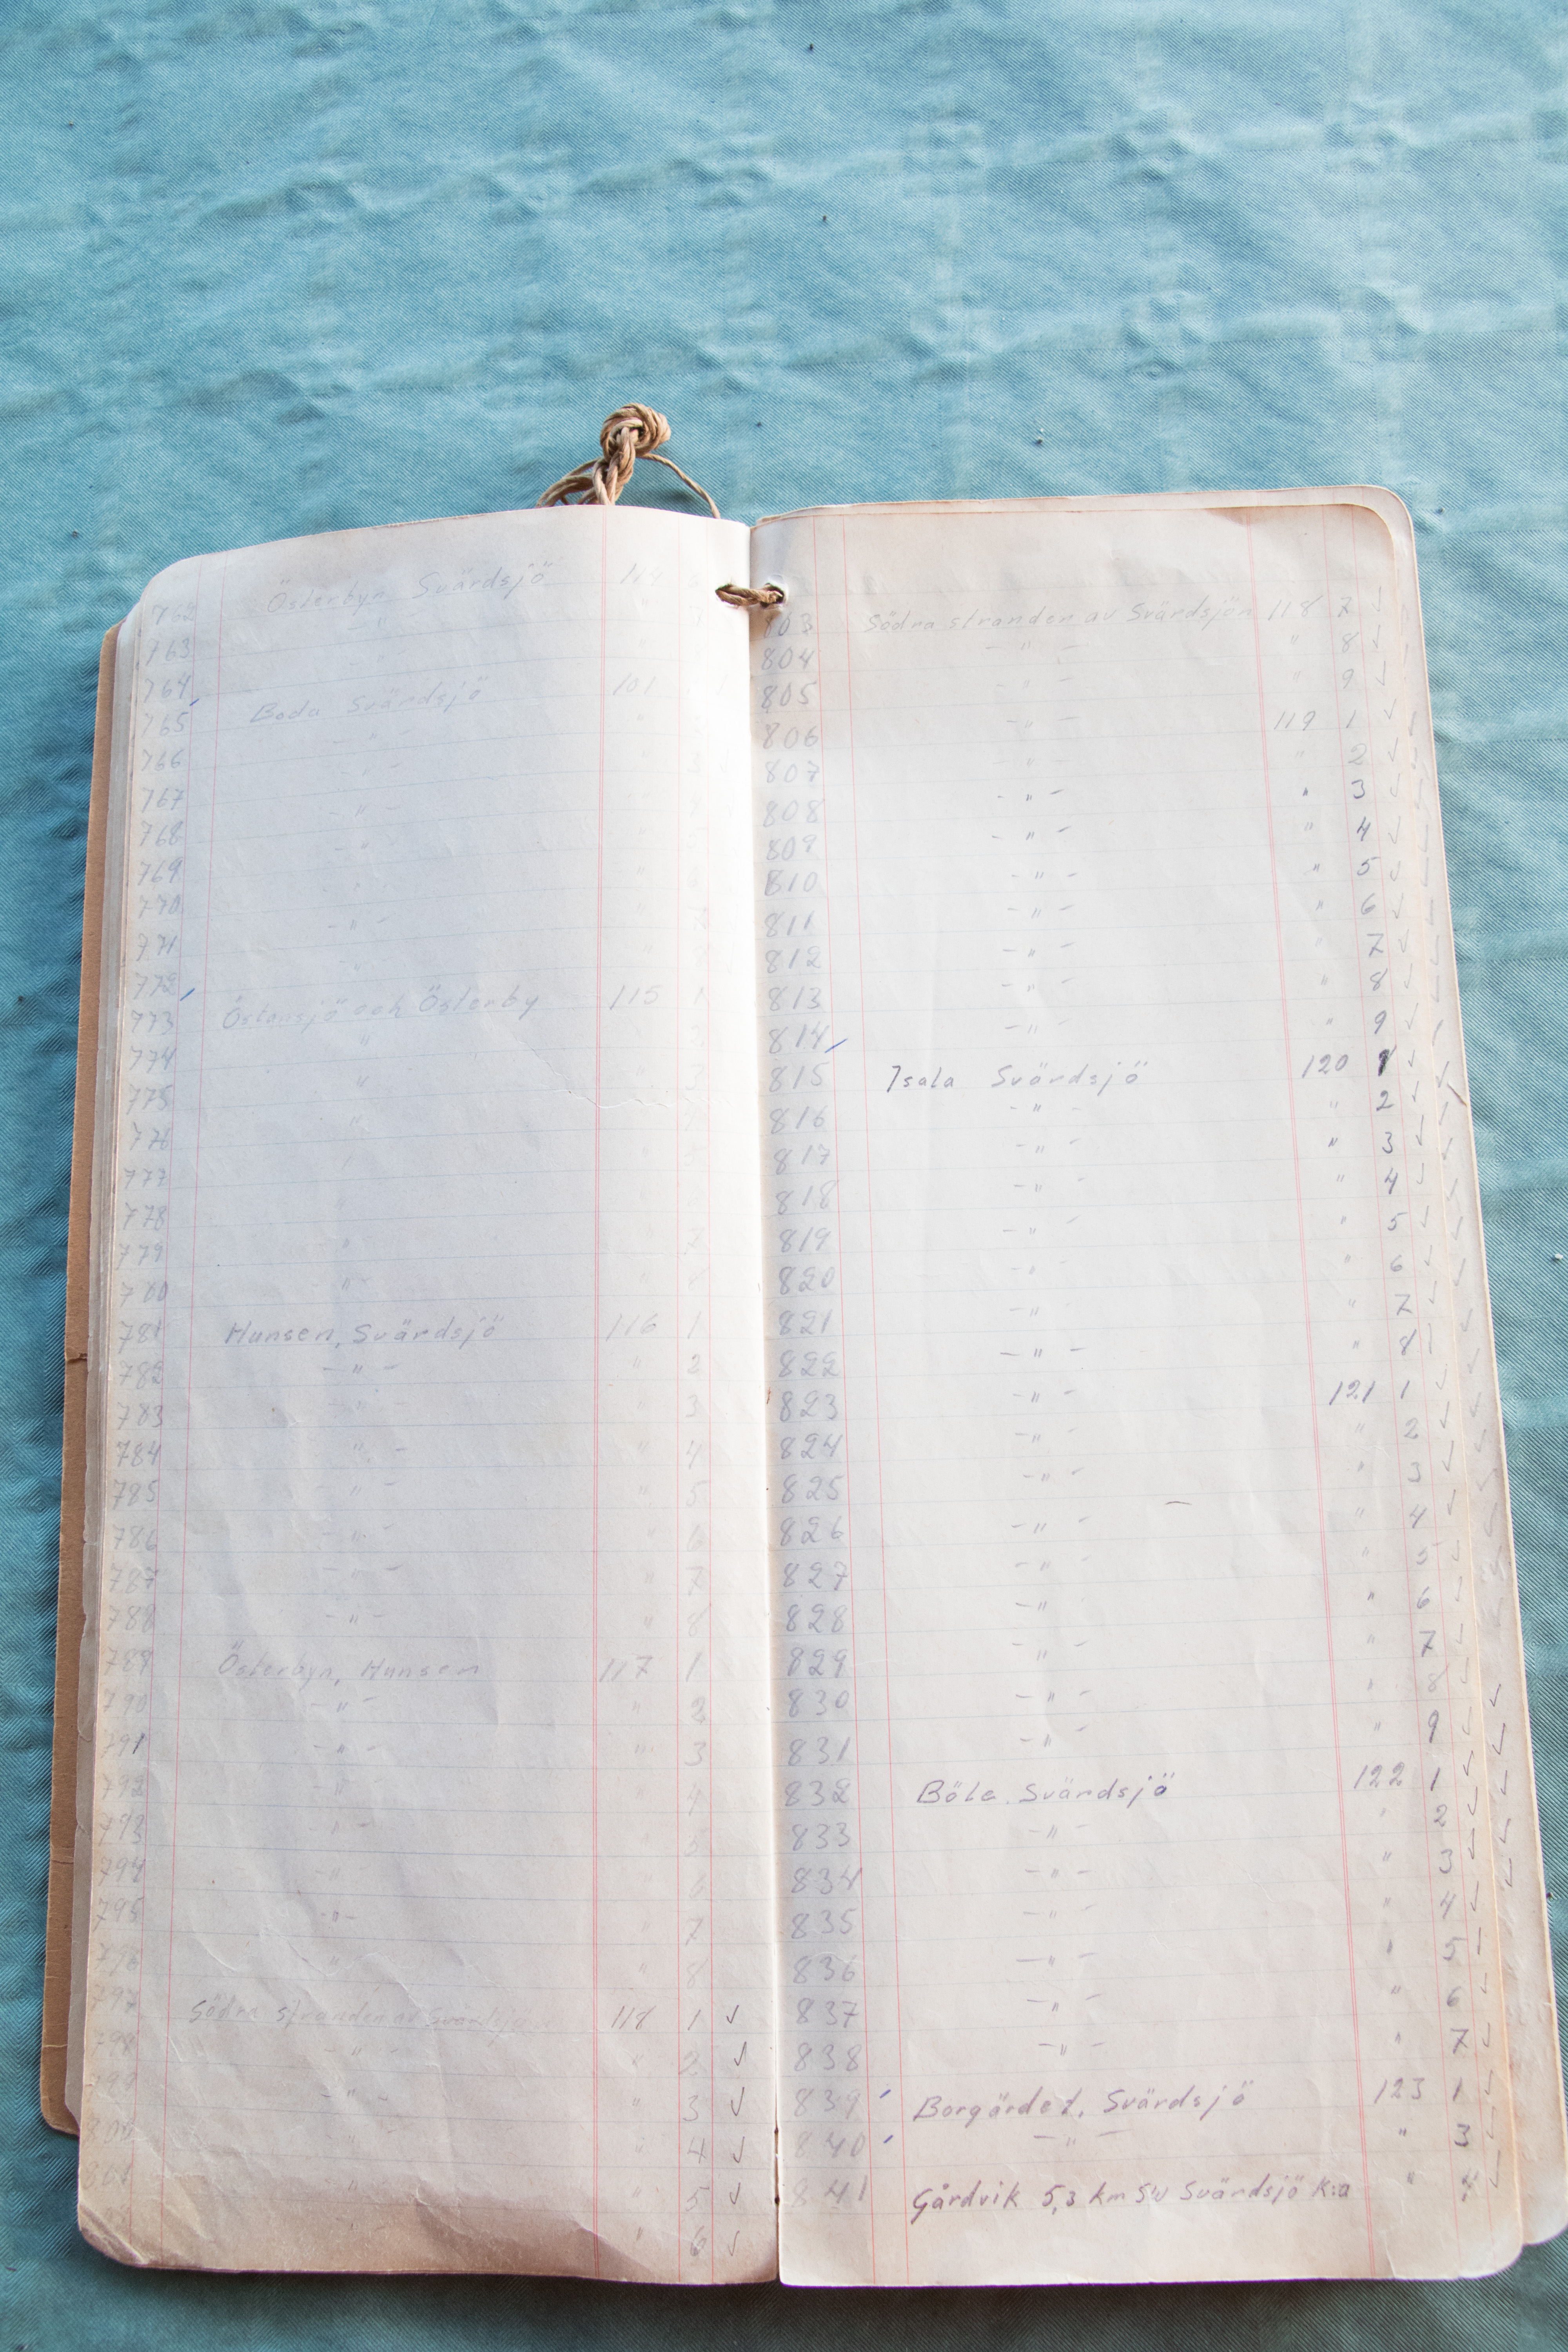 762 Österbyn Svärdsjö 114
763 "
764
765 Boda Svärdsjö 101
766 - " -
767 - " -
768 - " -
769 "
770 "
771 - " -
772 "
773 Östansjö och Österby 115 1
774 "
775 "
776 "
777
778 "
779 " 7
780 - " - " 8
781 Hunsen, Svärdsjö 116 1
782 - " - " 2
783 - " - " 3
784 " - " 4
785 - " - " 5
786 - " - " 6
787 - " - " 7
788 - " - " 8
789 Österbyn, Hunsen 117 1
790 - " - " 2
791 - " - " 3
792 - " - " 4
793 - " - " 5
794 - " - " 6
795 - " - " 7
796 - " - " 8
797 Södra stranden av Svärdsjön 118 1 ✓
798 - " - " 2 ✓
799 - " - " 3 ✓
800 " 4 ✓
801 " " 5 ✓
" 6 ✓
803 Södra stranden av Svärdsjön 118 7 ✓
804 - " - " 8 ✓
805 - " - " 9 ✓
806 - " - 119 1 ✓
807 - " - " 2 ✓
808 - " - " 3 ✓
809 - " - " 4 ✓
810 - " - " 5 ✓
811 - " - " 6 ✓
812 - " - " 7 ✓
813 - " - " 8 ✓
814 - " - " 9 ✓
815 Isala Svärdsjö 120 1 ✓
816 - " - " 2 ✓
817 - " - " 3 ✓
818 - " - " 4 ✓
819 - " - " 5 ✓
820 - " - " 6 ✓
821 - " - " 7 ✓
822 - " - " 8 ✓
823 - " - 121 1 ✓
824 - " - " 2 ✓
825 - " - " 3 ✓
826 - " - " 4 ✓
827 - " - " 5 ✓
828 - " - " 6 ✓
829 - " - " 7 ✓
830 - " - " 8 ✓
831 - " - " 9 ✓
832 Böle Svärdsjö 122 1 ✓
833 - " - " 2 ✓
834 - " - " 3 ✓
835 - " - " 4 ✓
836 - " - " 5 ✓
837 - " - " 6 ✓
838 - " - " 7 ✓
839 Borgärdet, Svärdsjö 123 1 ✓
840 - " - " 3 ✓
841 Gårdvik 5,3 km SV Svärdsjö k:a " 4 ✓